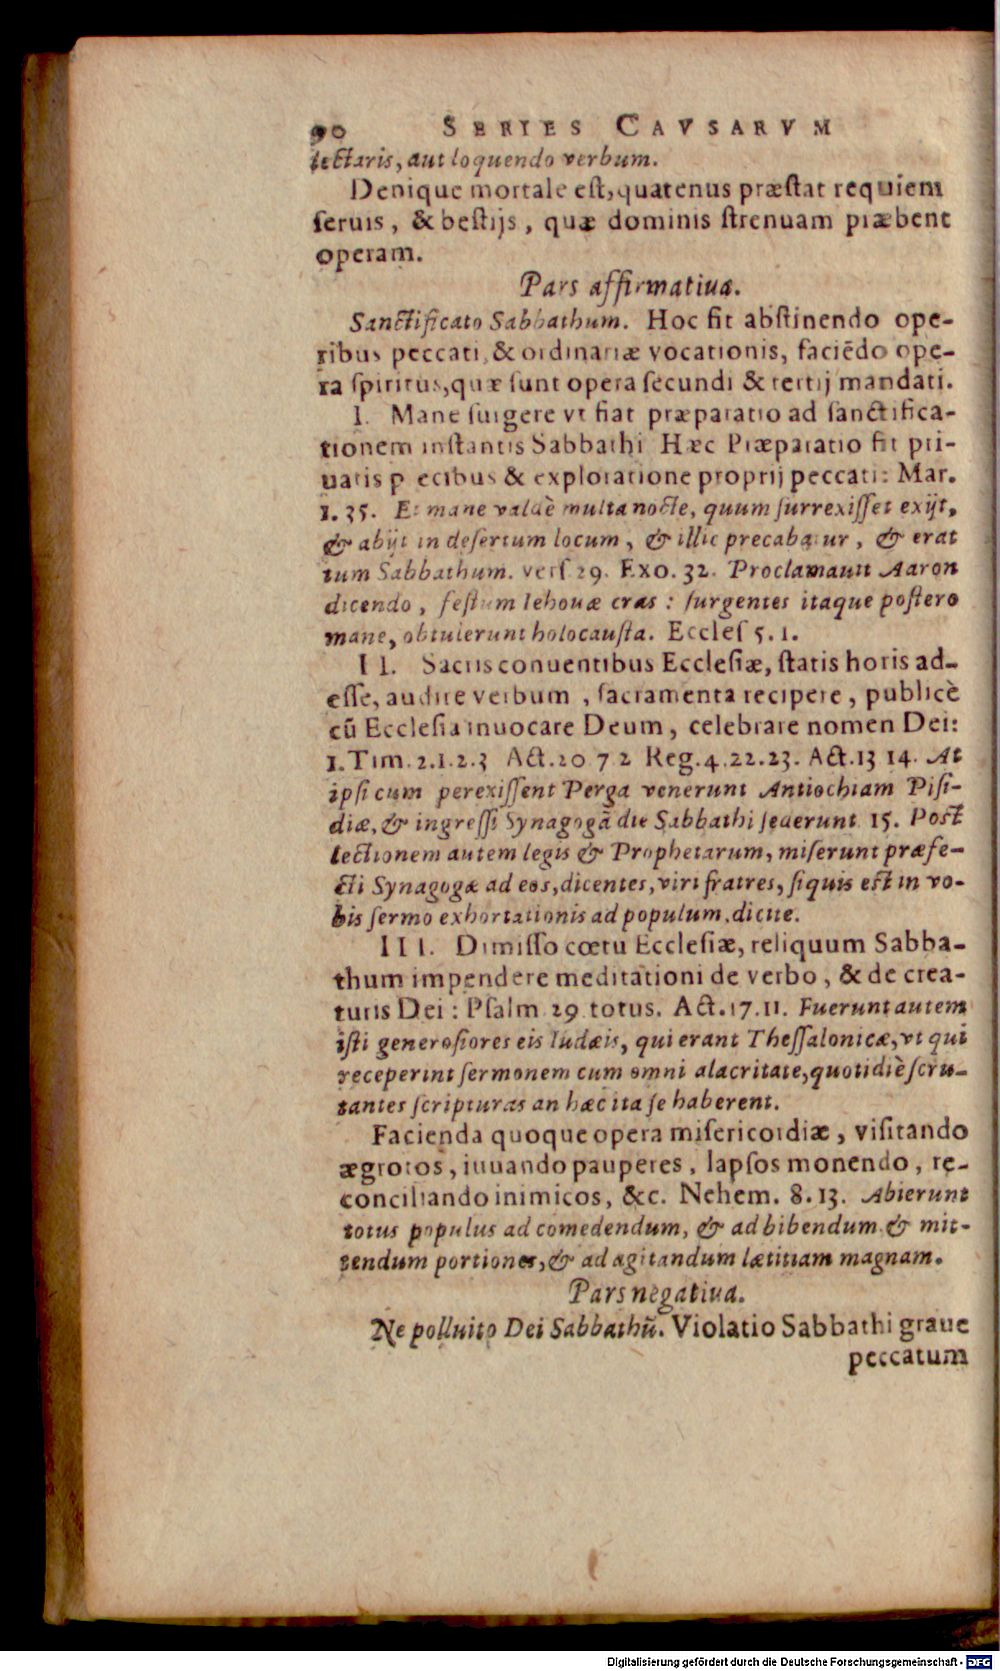 90 SERIES CAVSARVM
lectaris, aut loquendo verbum.
Denique mortale est, quatenus præstat requiem
seruis, & bestijs, quæ dominis strenuam præbent
operam.
Pars affirmatiua.
Sanctificato Sabbathum. Hoc fit abstinendo ope-
ribus peccati, & ordinariæ vocationis, faciēdo ope-
ra spiritus, quæ sunt opera secundi & tertij mandati.
I. Mane surgere vt fiat præparatio ad sanctifica-
tionem instantis Sabbathi Hæc Præparatio fit pri-
uatis precibus & exploratione proprij peccati: Mar.
1.35. Et mane valdè multa nocte, quum surrexisset exijt,
& abijt in desertum locum, & illic precabatur, & erat
tum Sabbathum. vers 29. Exo. 32. Proclamauit Aaron
dicendo, festum Iehouæ cras: surgentes itaque postero
mane, obtulerunt holocausta. Eccles 5.1.
II. Sacris conuentibus Ecclesiæ, statis horis ad-
esse, audire verbum, sacramenta recipere, publicè
cū Ecclesia inuocare Deum, celebrare nomen Dei:
1. Tim. 2.1.2.3 Act. 20 7 2 Reg. 4.22.23. Act. 13 14. At
ipsi cum perexissent Perga venerunt Antiochiam Pisi-
diæ, & ingressi Synagogā die Sabbathi sederunt 15. Post
lectionem autem legis & Prophetarum, miserunt præfe-
cti Synagogæ ad eos, dicentes, viri fratres, siquis est in vo-
bis sermo exhortationis ad populum, dicite.
III. Dimisso cœtu Ecclesiæ, reliquum Sabba-
thum impendere meditationi de verbo, & de crea-
turis Dei: Psalm 29 totus. Act. 17.11. Fuerunt autem
isti generosiores eis Iudæis, qui erant Thessalonicæ, vt qui
receperint sermonem cum omni alacritate, quotidiè scru-
tantes scripturas an hæc ita se haberent.
Facienda quoque opera misericordiæ, visitando
ægrotos, iuuando pauperes, lapsos monendo, re-
conciliando inimicos, &c. Nehem. 8.13. Abierunt
totus populus ad comedendum, & ad bibendum & mit-
tendum portiones, & ad agitandum lætitiam magnam.
Pars negatiua.
Ne polluito Dei Sabbathū. Violatio Sabbathi graue
peccatum
Digitalisierung gefördert durch die Deutsche Forschungsgemeinschaft - DFG